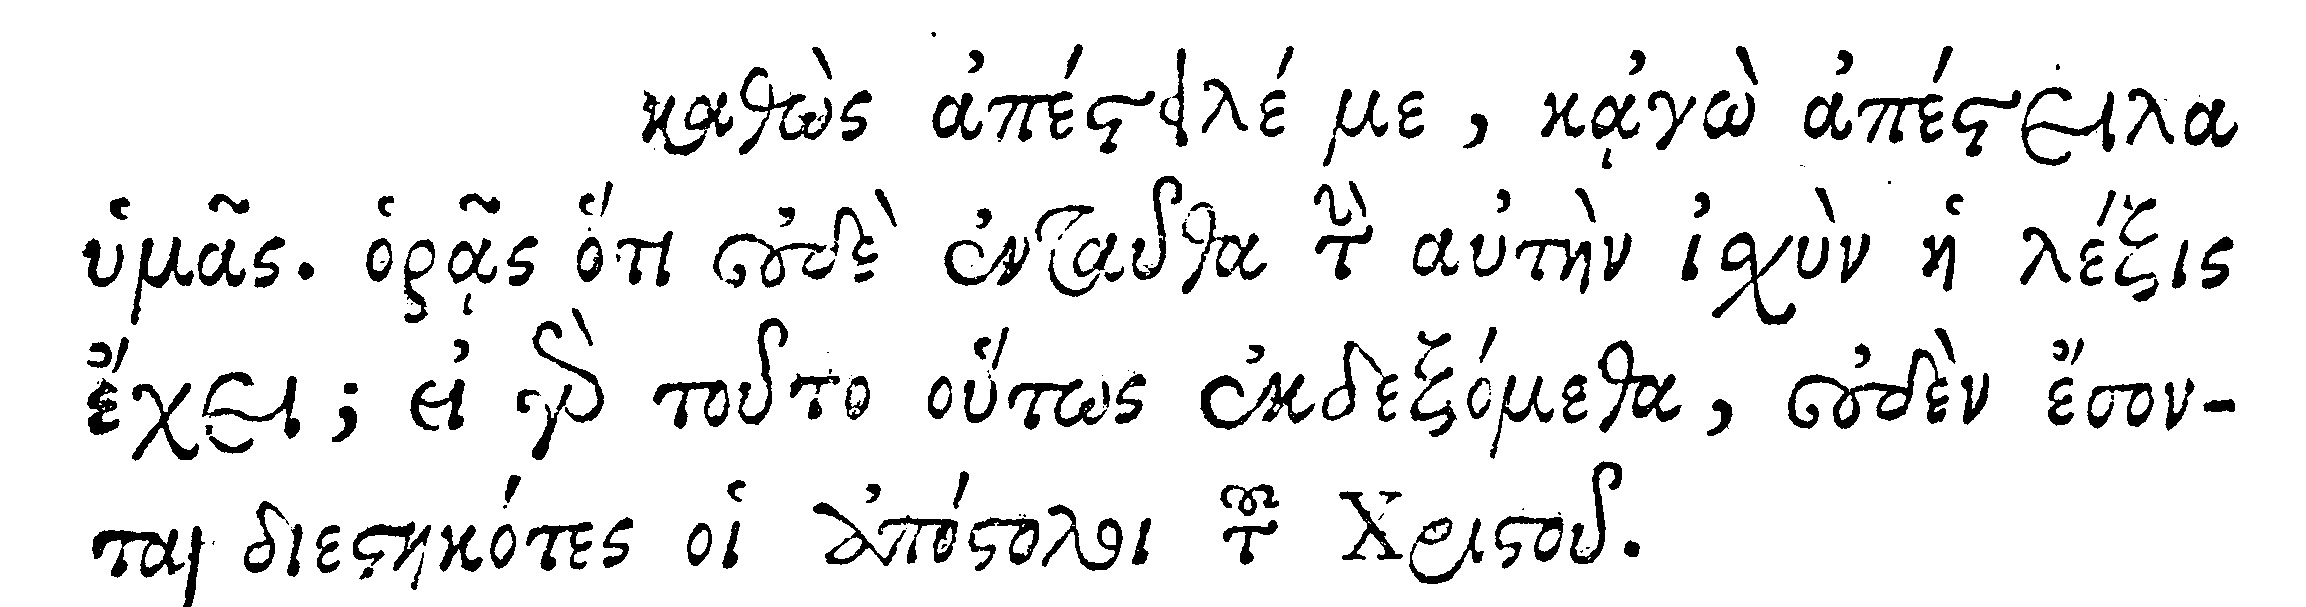 καθὼς ἀπέστειλέ με, κᾀγὼ ἀπέστειλα
ὑμᾶς. ὁρᾷς ὅτι οὐδὲ ἐνταῦθα τὴν αὐτὴν ἰχὺν ἡ λέξις
ἔχει; εἰ γὰρ τοῦτο οὕτως ἐκδεξόμεθα, οὐδὲν ἔσον-
ται διεστηκότες οἱ ἀπόστολοι τοῦ Χριστοῦ.